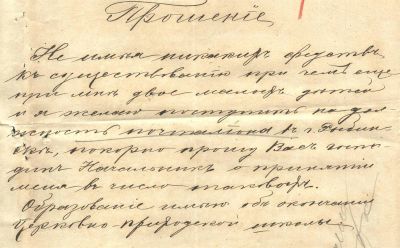 Прошеніе
Не имѣя никакихъ средствъ
къ существованію при чемъ еще
при мнѣ двое малыхъ дѣтей
и я желаю поступить на дол-
жность почталіона въ г. Рыбин-
скѣ, покорно прошу Васъ госпо-
динъ Начальникъ о принятіи
меня въ число таковыхъ.
Образованіе имѣю объ окончаніи
Церковно-приходской школы